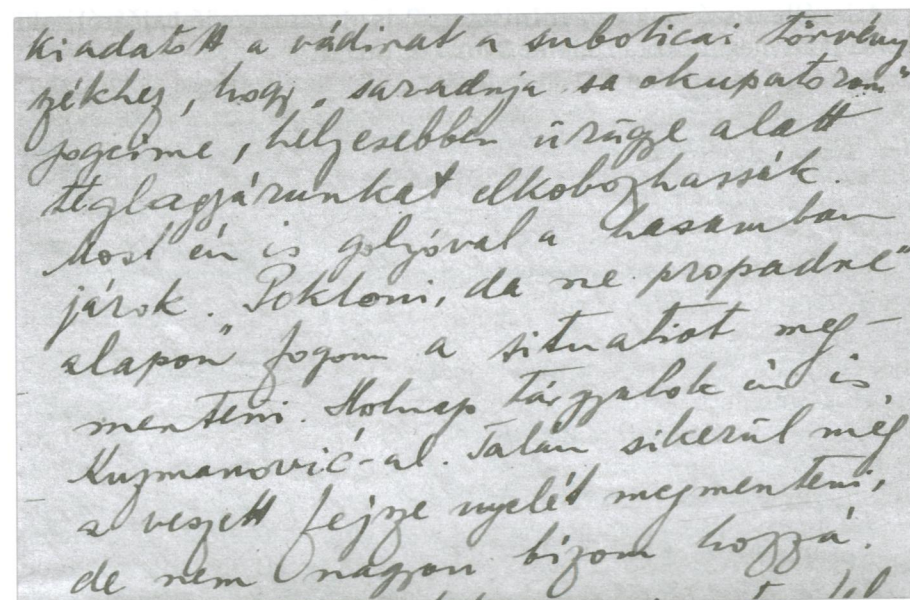 kiadatott a vádirat a suboticai törvény
székhez, hogy „saradnja sa okupatorom"
jogcime, helyesebben ürügye alatt
téglagyárunkat elkobozhassák.
Most én is golyóval a hasamban
járok. „Pokloni, da ne propadne"
alapon" fogom a situatiot meg-
menteni. Holnap tárgyalok én is
Kuzmanović-al. Talán sikerül még
a veszett fejsze nyelét megmenteni,
de nem nagyon bizom hozzá.